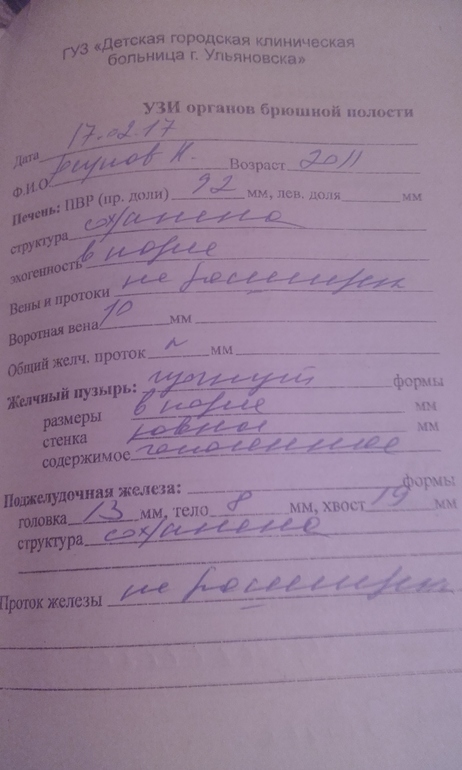 ГУЗ «Детская городская клиническая
больница г. Ульяновска»
УЗИ органов брюшной полости
Дата 17.02.17
Ф.И.О К. Возраст 2011
Печень: ПВР (пр. доли) 92 мм, лев. доля мм
структура сохранена
эхогенность в норме
Вены и протоки не расширен
Воротная вена 10 мм
Общий желч. проток мм
Желчный пузырь: формы
размеры в норме мм
стенка ровное мм
содержимое гомогенное
Поджелудочная железа: формы
головка 13 мм, тело 8 мм, хвост 19 мм
структура сохранена
Проток железы не расширен